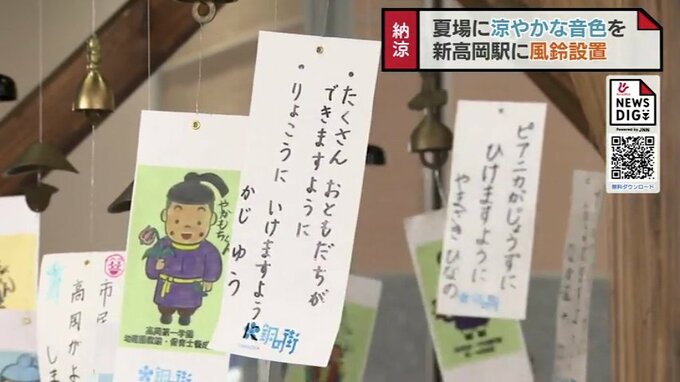 納涼
夏場に涼やかな音色を
新高岡駅に風鈴設置
NEWS
DIG
Powered by JNN
無料ダウンロード
・たくさん おともだちが
できますように
・りょこうに いけますように
かじ ゆう
銅の街
ピアニカがじょうずに
ひけますように
やまざき ひなの
やかもちくん
高岡第一学園
幼稚園教諭・保育士養成
高岡がよ